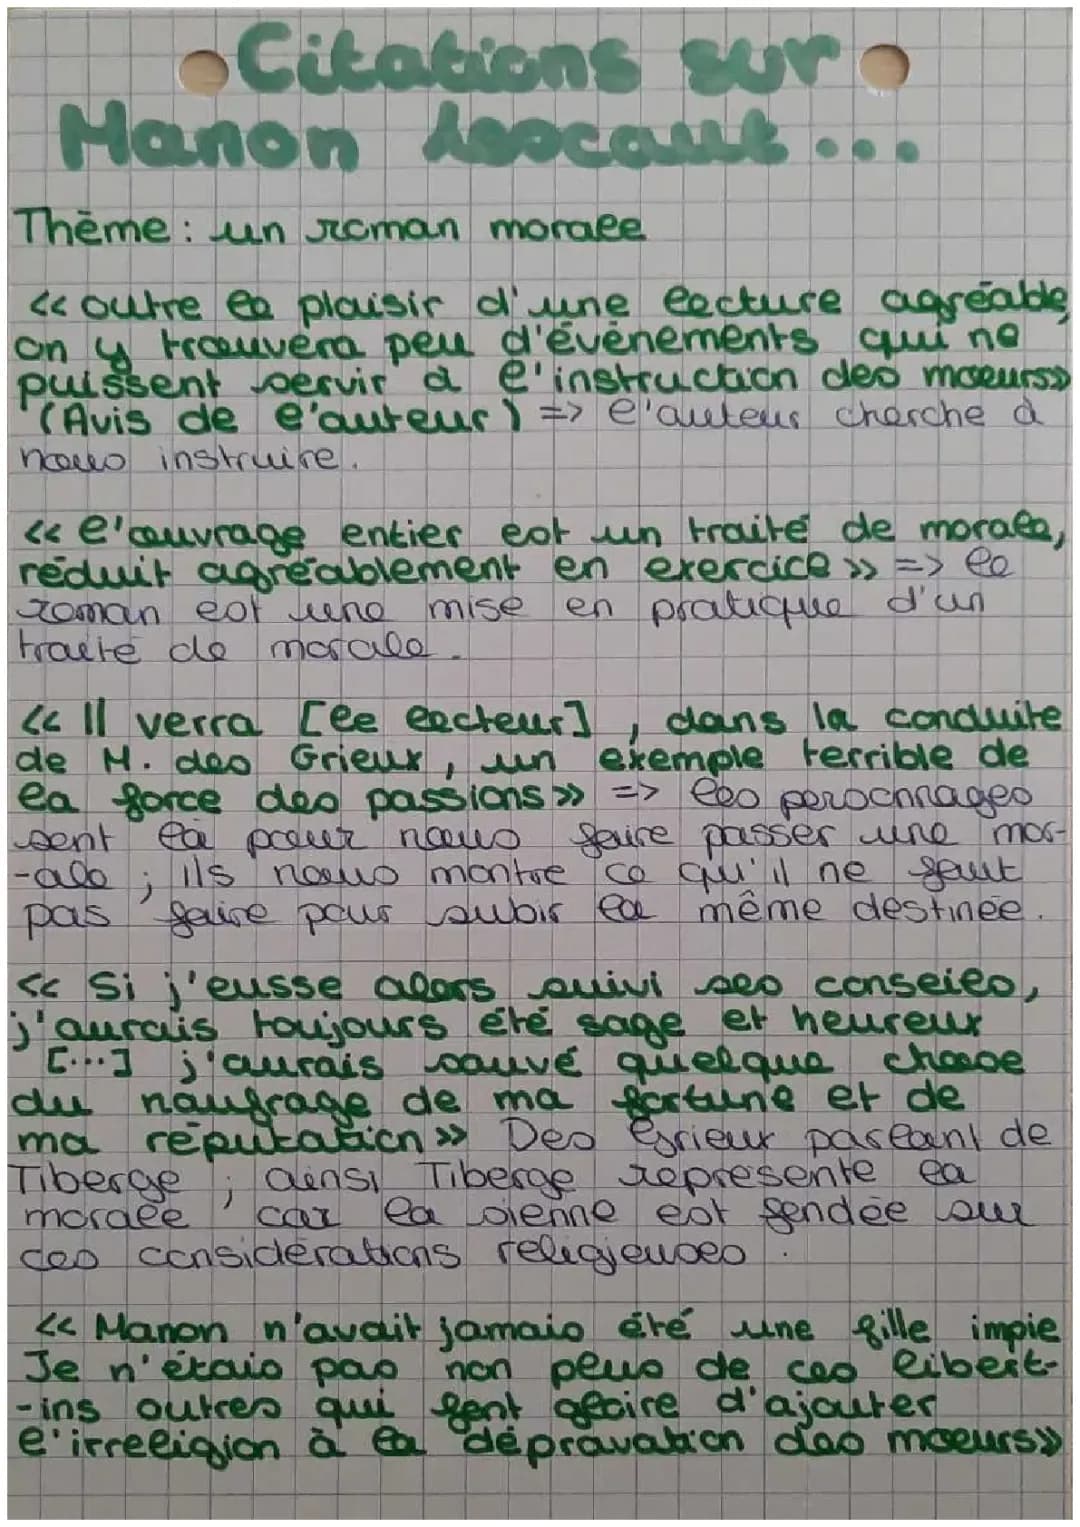 Citations sur
Manon Lescaut...
Thème: un roman morale
<< outre le plaisir d'une lecture agréable,
on y trouvera peu d'évènements qui ne
puissent servir à l'instruction des moeurs>>
(Avis de l'auteur) => l'auteur cherche à
nous instruire.
<< l'ouvrage entier est un traité de morale,
réduit agréablement en exercice >> => le
roman est une mise en pratique d'un
traité de morale.
<< Il verra [le lecteur], dans la conduite
de M. des Grieux, un exemple terrible de
la force des passions >> => les personnages
sont là pour nous faire passer une mor-
-ale ; ils nous montre ce qu'il ne faut
pas faire pour subir la même destinée.
<< Si j'eusse alors suivi ses conseils,
j'aurais toujours été sage et heureux
[...] j'aurais sauvé quelque chose
du naufrage de ma fortune et de
ma réputation >> Des Grieux parlant de
Tiberge ; ainsi Tiberge représente la
morale car la sienne est fondée sur
ces considérations religieuses.
<< Manon n'avait jamais été une fille impie
Je n'étais pas non plus de ces libert-
-ins outrés qui font gloire d'ajouter
l'irreligion à la dépravation des moeurs>>